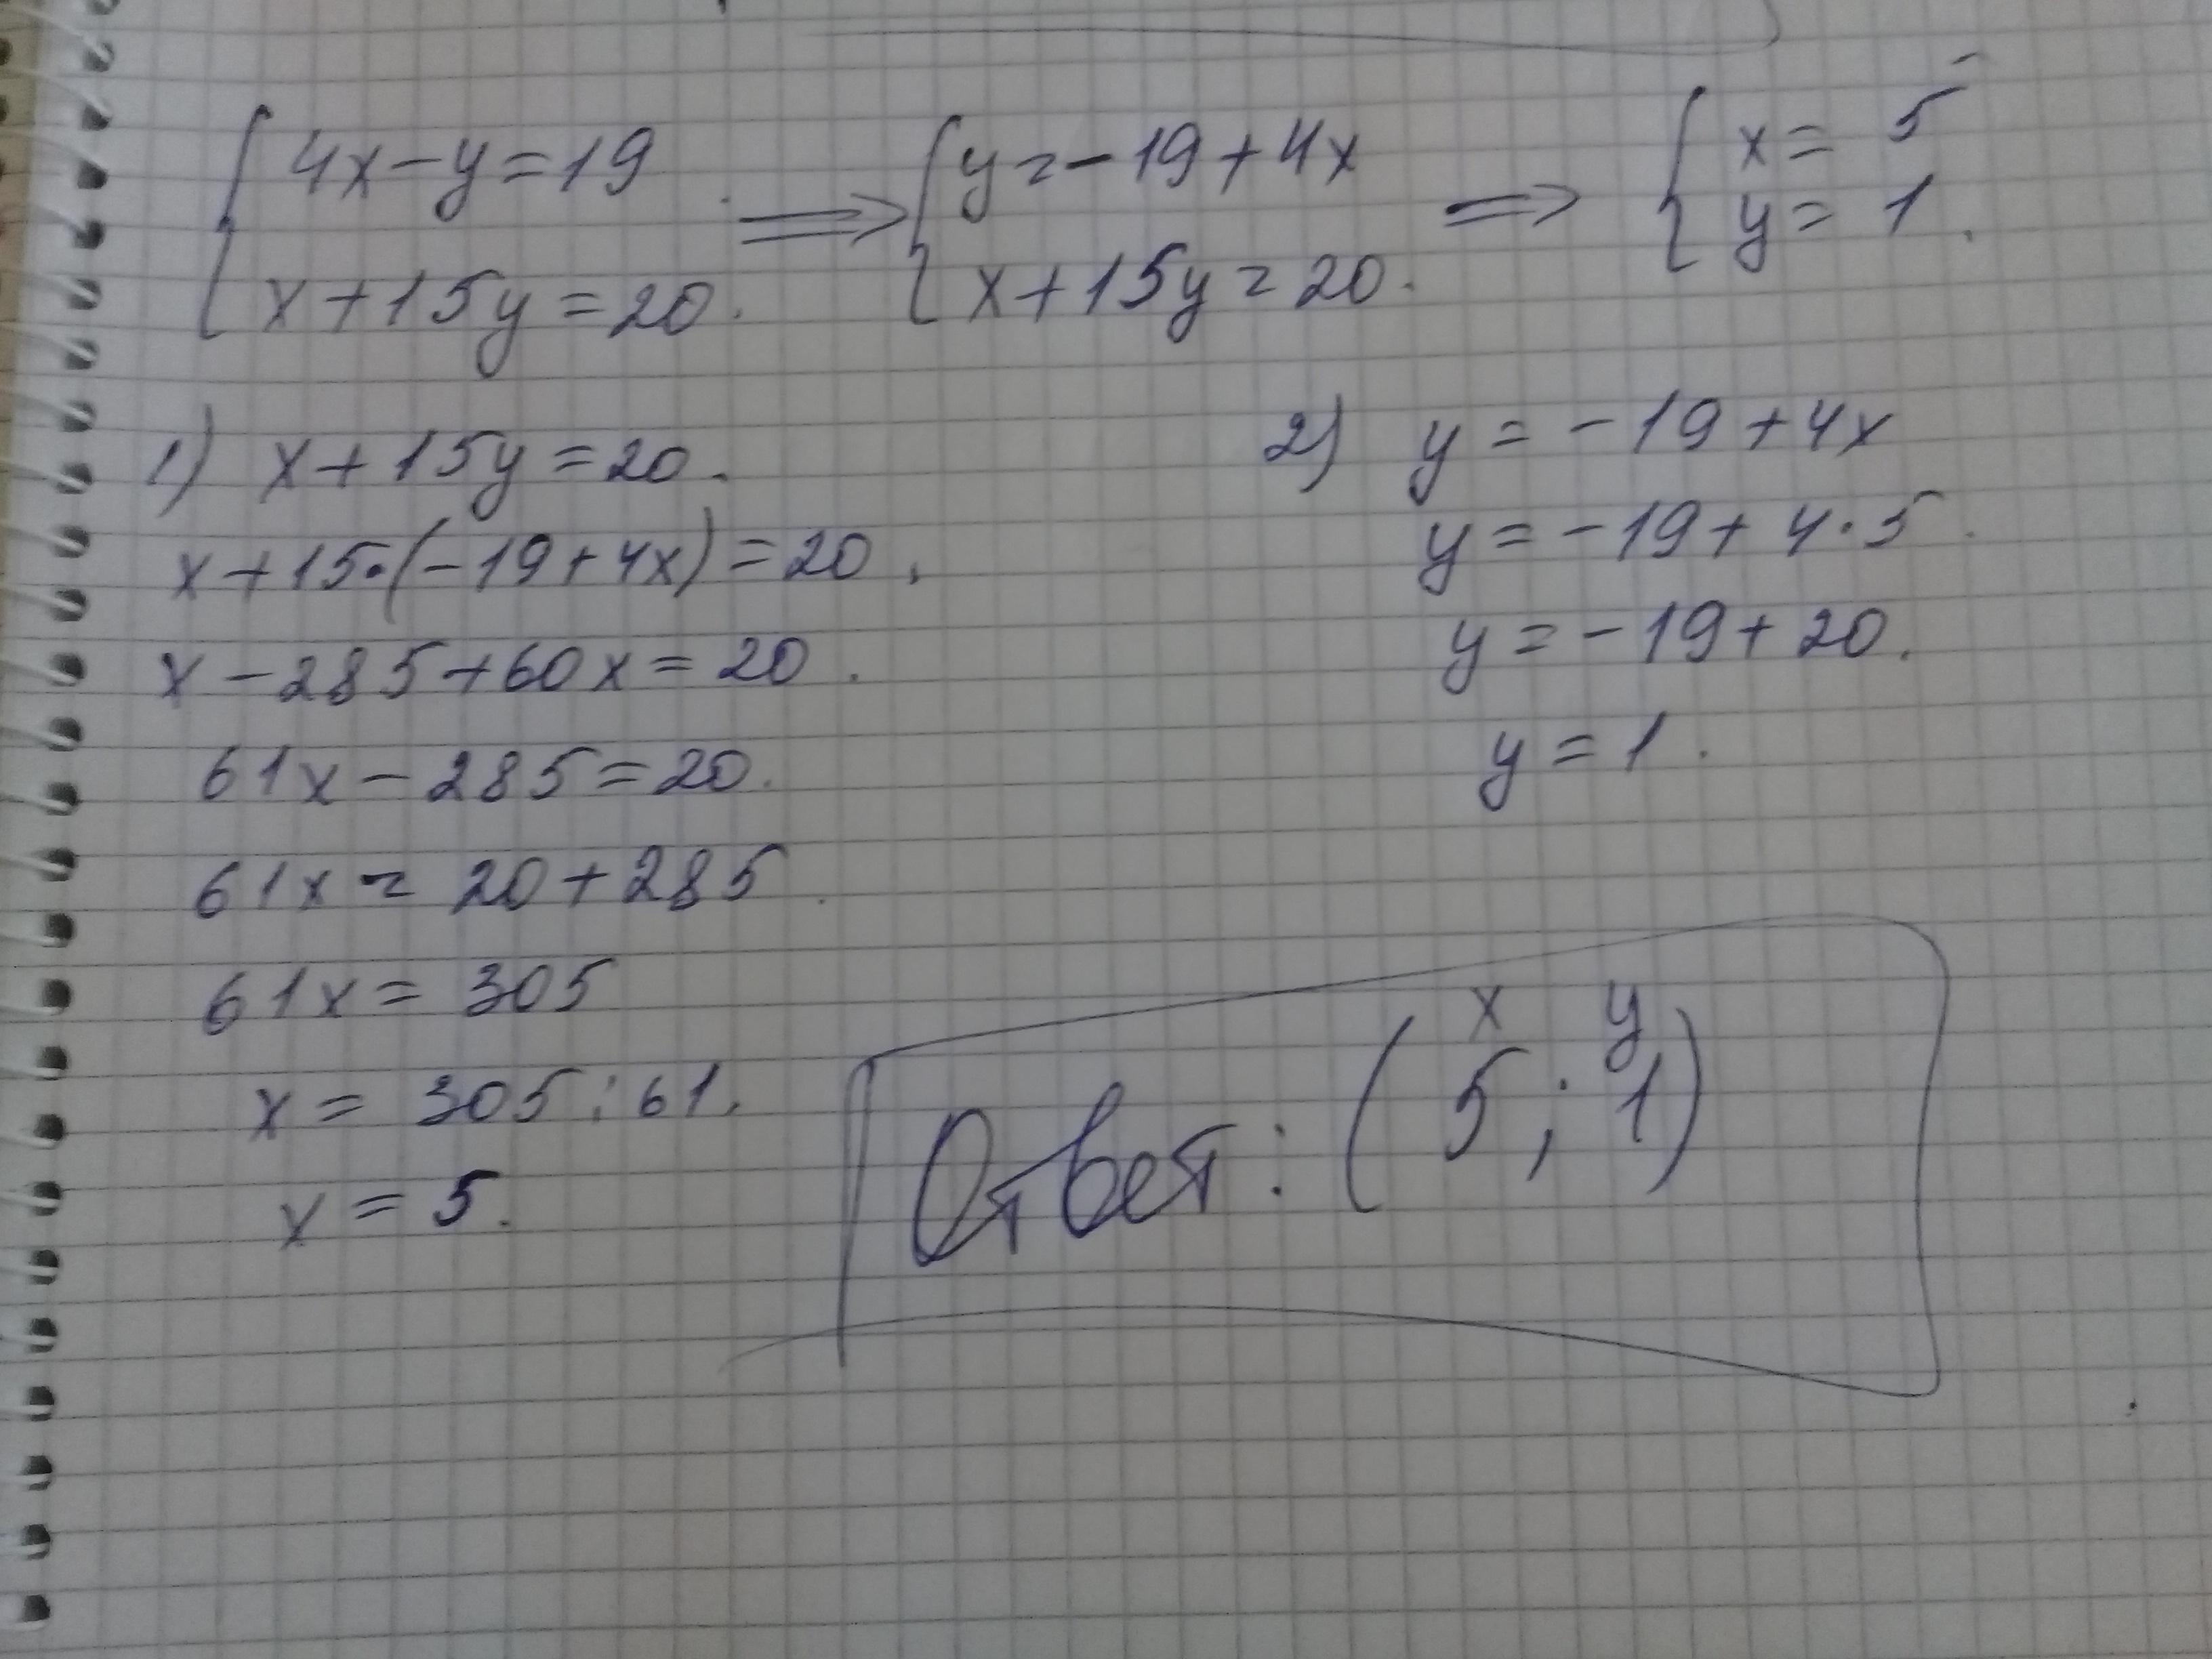 4x-y=19 ⟹ y=-19+4x ⟹ x= 5
x+15y=20. x+15y=20. y= 1.
1) x+15y=20.
x+15·(-19+4x)=20.
x-285+60x=20.
61x-285=20.
61x=20+285.
61x=305
x=305:61.
x=5.
2) y=-19+4x
y=-19+4·5.
y=-19+20.
y=1.
x y
Ответ: (5; 1)